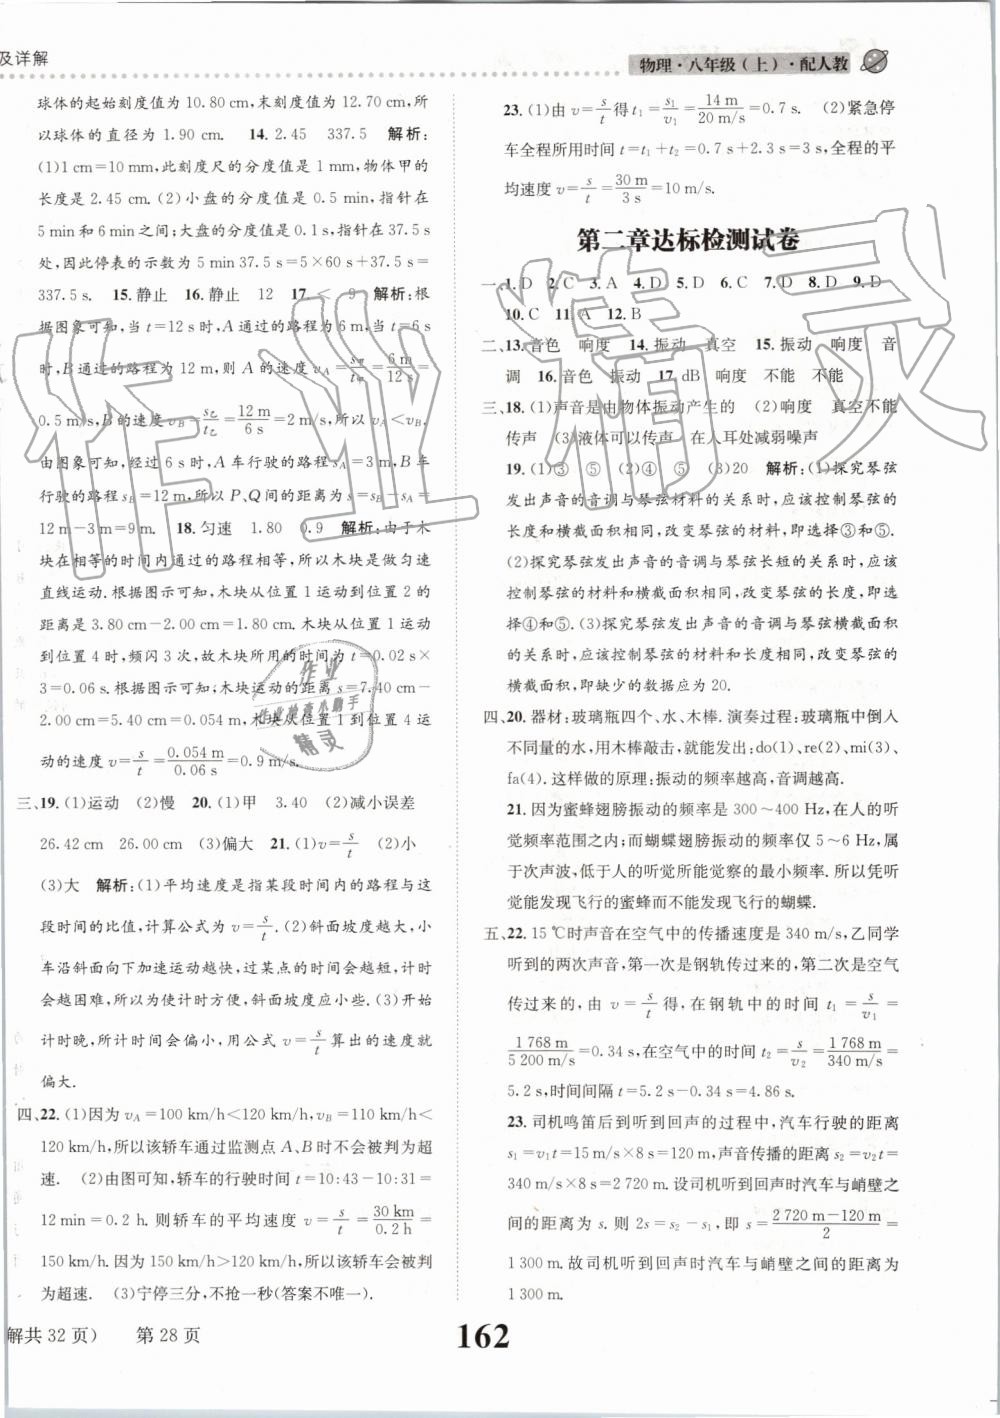 及详解
物理·八年级(上)·配人教
球体的起始刻度值为 10.80 cm,末刻度值为 12.70 cm,所
以球体的直径为 1.90 cm. 14. 2.45 337.5 解析:
(1)1 cm=10 mm,此刻度尺的分度值是 1 mm,物体甲的
长度是 2.45 cm. (2)小盘的分度值是 0.5 min,指针在
5 min和 6 min之间;大盘的分度值是 0.5 s,指针在 37.5 s
处,因此停表的示数为 5 min 37.5 s=5×60 s+37.5 s=
337.5 s. 15. 静止 16. 静止 12 17. < 9 解析:根
据图象可知,当 t=12 s时,A 通过的路程为 6 m,当 t=6 s
时,B 通过的路程为 12 m,则 A 的速度 vA=s甲/t甲=6 m/12 s=
0.5 m/s,B 的速度 vB=s乙/t乙=12 m/6 s=2 m/s,所以 vA<vB,
由图象可知,经过 6 s时,A 车行驶的路程 sA=3 m,B 车行
驶的路程 sB=12 m,所以 P、Q 间的距离 s=sB-sA=
12 m-3 m=9 m. 18. 匀速 1.80 0.9 解析:由于木
块在相等的时间内通过的路程相等,所以木块做匀速
直线运动. 根据图示可知,木块从位置 1 运动到位置 2 的
距离是 3.80 cm-2.00 cm=1.80 cm. 木块从位置 1 运动
到位置 4 时,频闪 3 次,故木块所用的时间为 t=0.02 s×
3=0.06 s. 根据图示可知,木块运动的距离 s=7.40 cm-
2.00 cm=5.40 cm=0.054 m,木块从位置 1 到位置 4 运
动的速度 v=s/t=0.054 m/0.06 s=0.9 m/s.
三、19. (1)运动 (2)慢 20. (1)甲 3.40 (2)减小误差
26.42 cm 26.00 cm (3)偏大 21. (1)v=s/t (2)小
(3)大 解析:(1)平均速度是指某段时间内的路程与这
段时间的比值,计算公式为 v=s/t. (2)斜面坡度越大,小
车沿斜面向下加速运动越快,过某点的时间会越短,计时
会越困难,所以为使计时方便,斜面坡度应小些. (3)开始
计时晚,所计时间会偏小,用公式 v=s/t算出的速度就
偏大.
四、22. (1)因为 vA=100 km/h<120 km/h,vB=110 km/h<
120 km/h,所以该轿车通过监测点 A、B 时不会被判为超
速. (2)由图可知,轿车的行驶时间 t=10:43-10:31=
12 min=0.2 h. 则轿车的平均速度 v=s/t=30 km/0.2 h=
150 km/h. 因为 150 km/h>120 km/h,所以该轿车会被判
为超速. (3)宁停三分,不抢一秒(答案不唯一).
23. (1)由 v=s/t得 t1=s1/v1=14 m/20 m/s=0.7 s. (2)紧急停
车全程所用时间 t=t1+t2=0.7 s+2.3 s=3 s,全程的平
均速度 v=s/t=30 m/3 s=10 m/s.
第二章达标检测试卷
一、1. D 2. C 3. A 4. D 5. D 6. C 7. D 8. D 9. D
10. C 11. A 12. B
二、13. 音色 响度 14. 振动 真空 15. 振动 响度 音
调 16. 音色 振动 17. dB 响度 不能 不能
三、18. (1)声音是由物体振动产生的 (2)响度 真空不能
传声 (3)液体可以传声 在人耳处减弱噪声
19. (1)③ ⑤ (2)④ ⑤ (3)20 解析:(1)探究琴弦
发出声音的音调与琴弦材料的关系时,应该控制琴弦的
长度和横截面积相同,改变琴弦的材料,即选择③和⑤.
(2)探究琴弦发出声音的音调与琴弦长短的关系时,应该
控制琴弦的材料和横截面积相同,改变琴弦的长度,即选
择④和⑤. (3)探究琴弦发出声音的音调与琴弦横截面积
的关系时,应该控制琴弦的材料和长度相同,改变琴弦的
横截面积,即缺少的数据应为 20.
四、20. 器材:玻璃瓶四个、水、木棒. 演奏过程:玻璃瓶中倒入
不同量的水,用木棒敲击,就能发出:do(1)、re(2)、mi(3)、
fa(4). 这样做的原理:振动的频率越高,音调越高.
21. 因为蜜蜂翅膀振动的频率是 300~400 Hz,在人的听
觉频率范围之内;而蝴蝶翅膀振动的频率仅 5~6 Hz,属
于次声波,低于人的听觉所能觉察的最小频率. 所以凭听
觉能发现飞行的蜜蜂而不能发现飞行的蝴蝶.
五、22. 15 ℃时声音在空气中的传播速度是 340 m/s,乙同学
听到的两次声音,第一次是钢轨传过来的,第二次是空气
传过来的,由 v=s/t得,在钢轨中的时间 t1=s/v1=
1 768 m/5 200 m/s=0.34 s,在空气中的时间 t2=s/v2=1 768 m/340 m/s=
5.2 s,时间间隔 t=5.2 s-0.34 s=4.86 s.
23. 司机鸣笛后到听到回声的过程中,汽车行驶的距离
s1=v1t=15 m/s×8 s=120 m,声音传播的距离 s2=v2t=
340 m/s×8 s=2 720 m. 设司机听到回声时汽车与峭壁之
间的距离为 s. 则 2s=s2-s1,即 s=2 720 m-120 m/2=
1 300 m. 故司机听到回声时汽车与峭壁之间的距离为
1 300 m.
解共 32 页) 第 28 页
162
作业精灵
作业
作业检查小助手
精灵